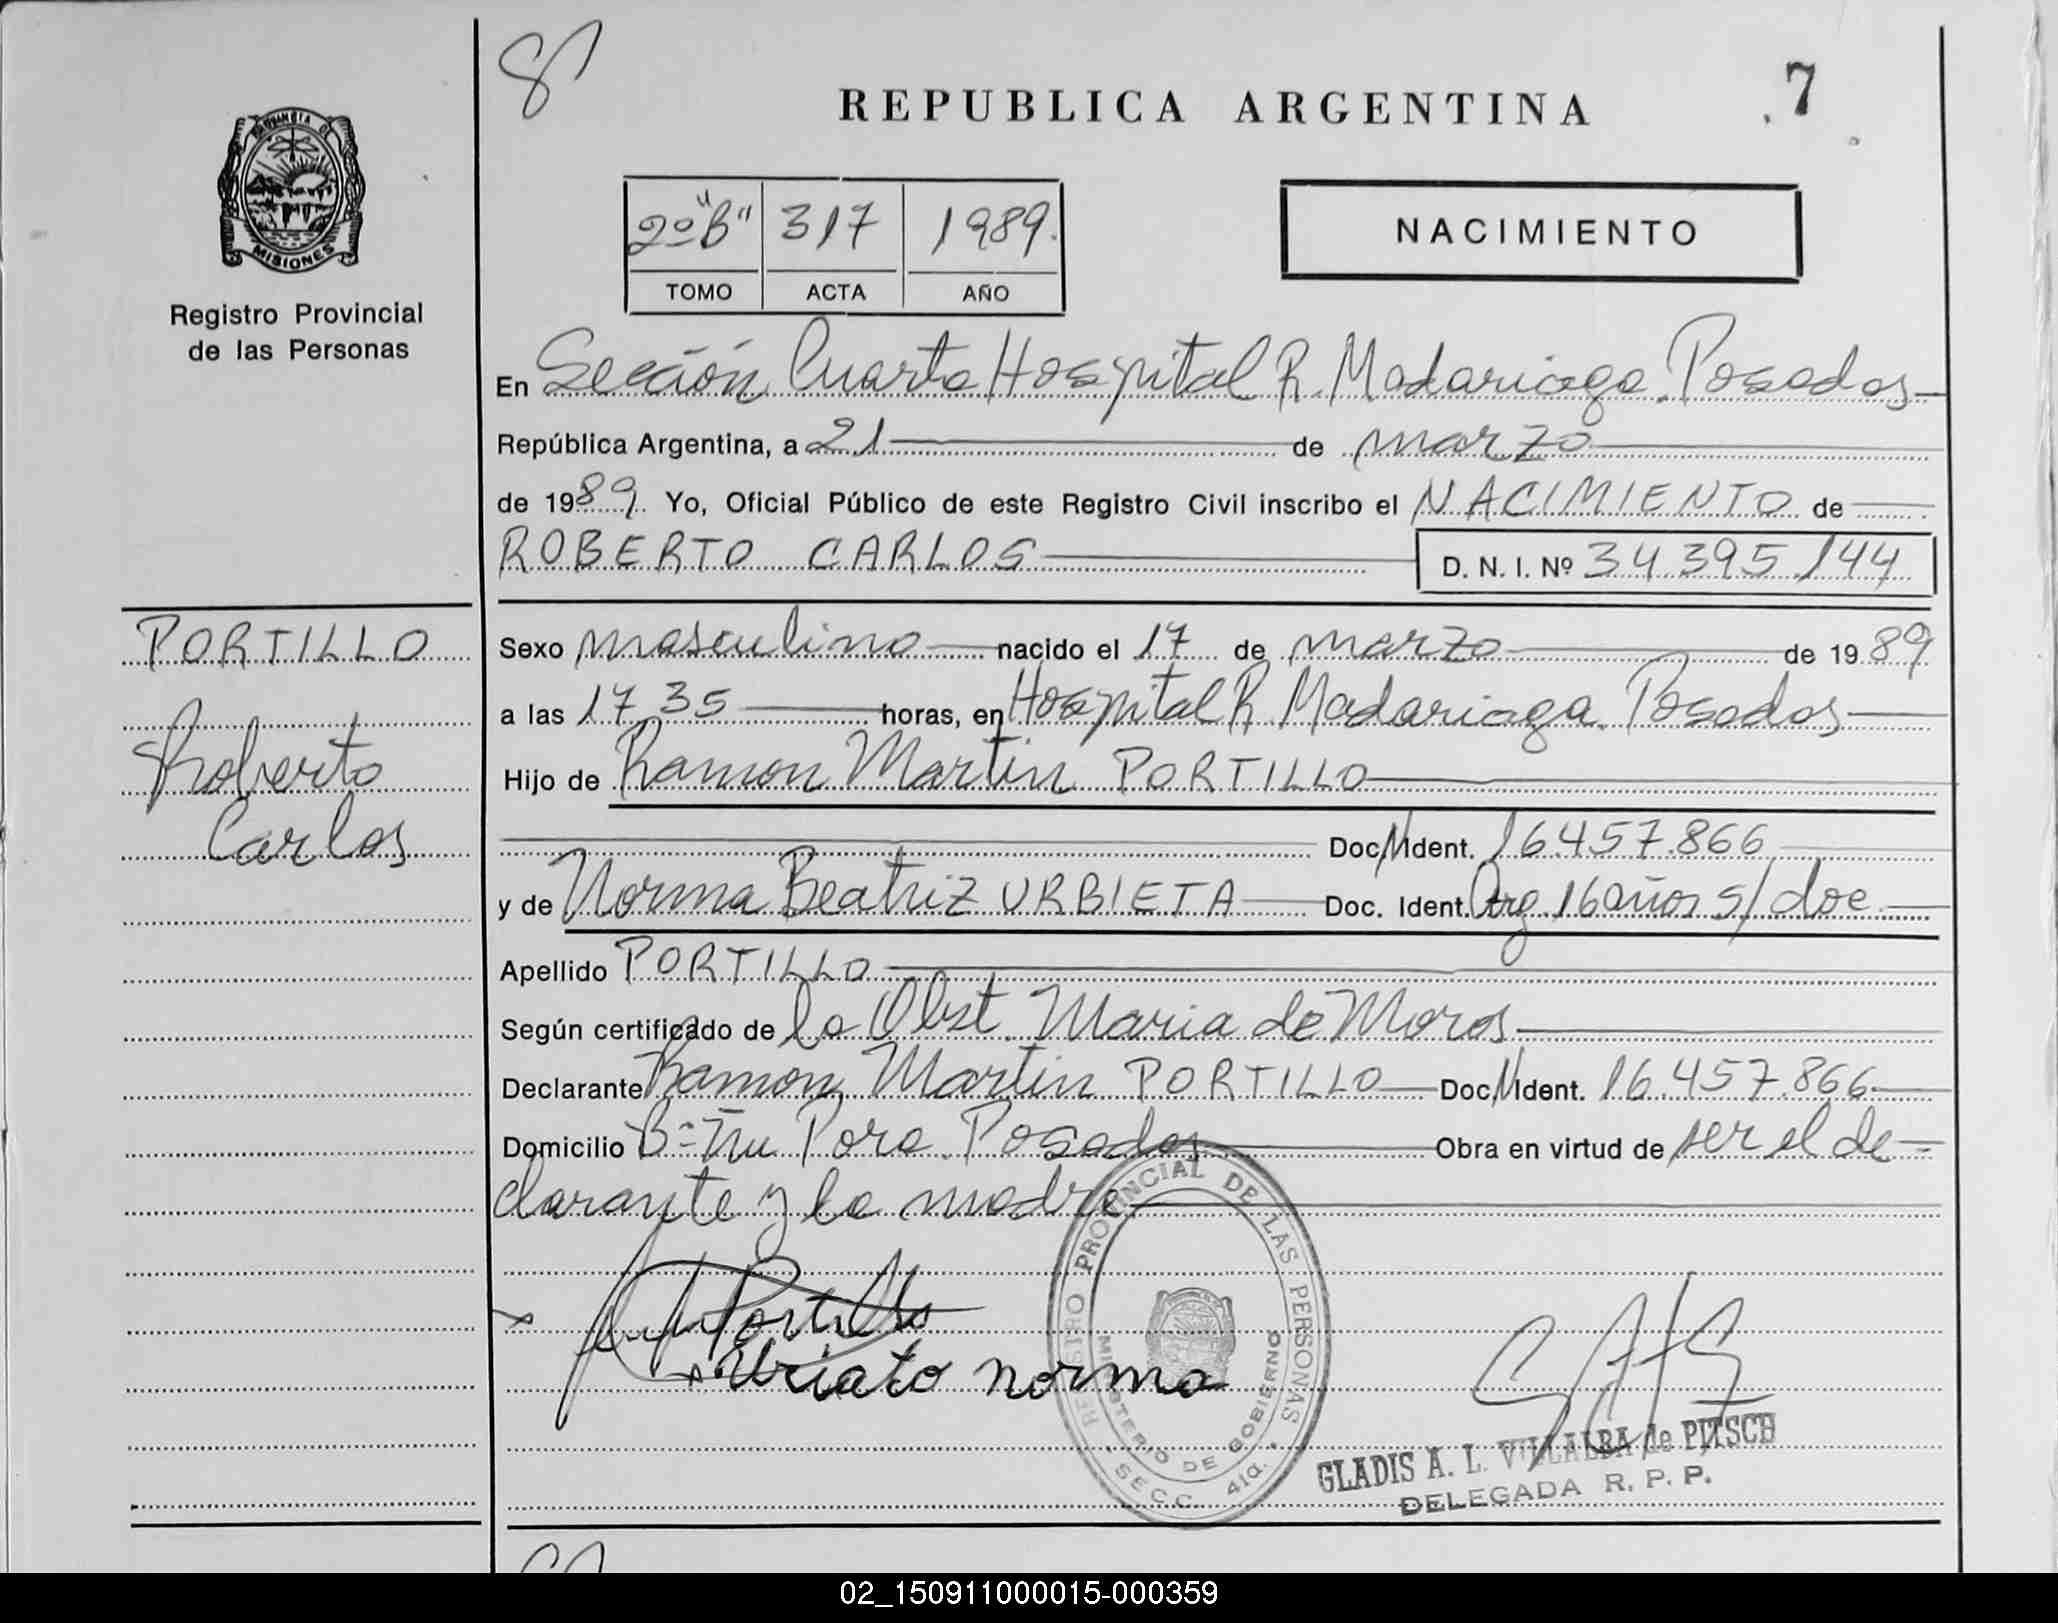 REPUBLICA ARGENTINA
7
PROVINCIA DE
MISIONES
Registro Provincial
de las Personas
2º "B" 317 1989.
TOMO ACTA AÑO
NACIMIENTO
En Sección Cuarta Hospital R. Madariaga. Posadas
República Argentina, a 21 de marzo
de 1989. Yo, Oficial Público de este Registro Civil inscribo el NACIMIENTO de
ROBERTO CARLOS D. N. I. Nº 34.395.144
PORTILLO
Roberto
Carlos
Sexo masculino nacido el 17 de marzo de 1989
a las 17.35 horas, en Hospital R. Madariaga. Posadas
Hijo de Ramon Martin PORTILLO
Doc. Ident. 16.457.866
y de Norma Beatriz URBIETA Doc. Ident. Arg. 16 años s/doc.
Apellido PORTILLO
Según certificado de la Obst. Maria de Moros
Declarante Ramon Martin PORTILLO Doc. Ident. 16.457.866
Domicilio Bº Ñu Pora. Posadas Obra en virtud de ser el de-
clarante y la madre
Portillo
norma
REGISTRO PROVINCIAL DE LAS PERSONAS
MINISTERIO DE GOBIERNO
SECC. 4ta.
GLADIS A. L. VILLALBA de PITSCH
DELEGADA R. P. P.
02_150911000015-000359